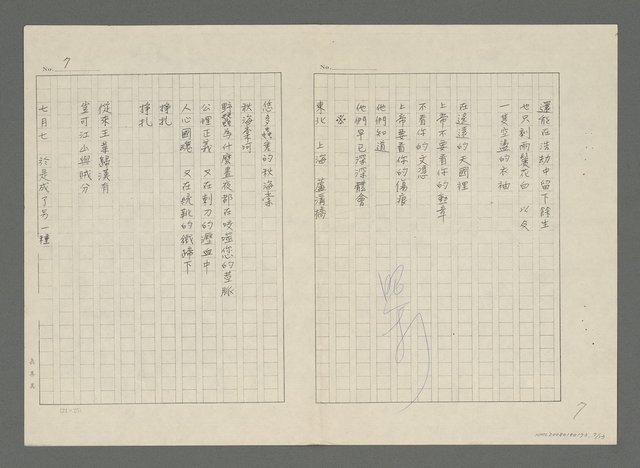 No.
還能在浩劫中留下餘生
也只剩兩鬢花白 以及
一隻空盪的衣袖
在遙遠的天國裡
上帝不要看你的勳章
不看你的文憑
上帝要看你的傷痕
他們知道
他們早已深深體會
※
東北 上海 蘆溝橋
7
No. 7
您多蟲害的秋海棠
秋海棠河
野蠶為什麼晝夜都在咬噬您的莖脈
公理正義 又在刺刀的瀝血中
人心國魂 又在統靴的鐵蹄下
掙扎
掙扎
從來王業歸漢有
豈可江山與賊分
七月七 於是成了另一種
(21×25)